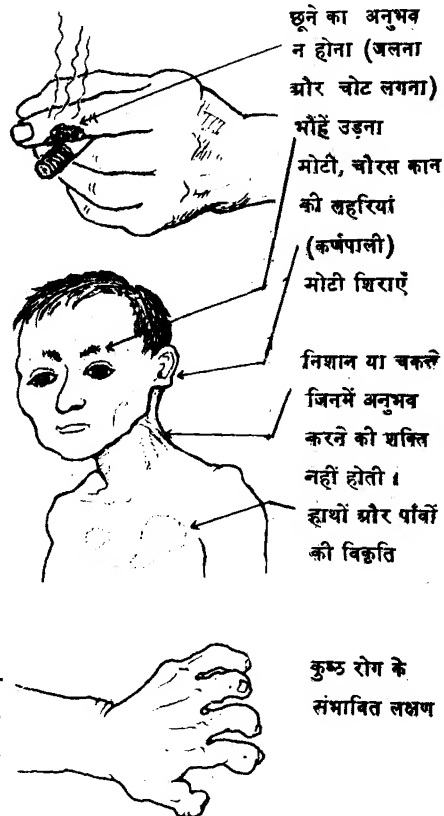 छूने का अनुभव
न होना (जलना
और चोट लगना)
भौंहें उड़ना
मोटी, चौरस कान
की लहरियां
(कर्णपाली)
मोटी शिराएँ
निशान या चकत्ते
जिनमें अनुभव
करने की शक्ति
नहीं होती।
हाथों और पाँवों
की विकृति
कुष्ठ रोग के
संभावित लक्षण